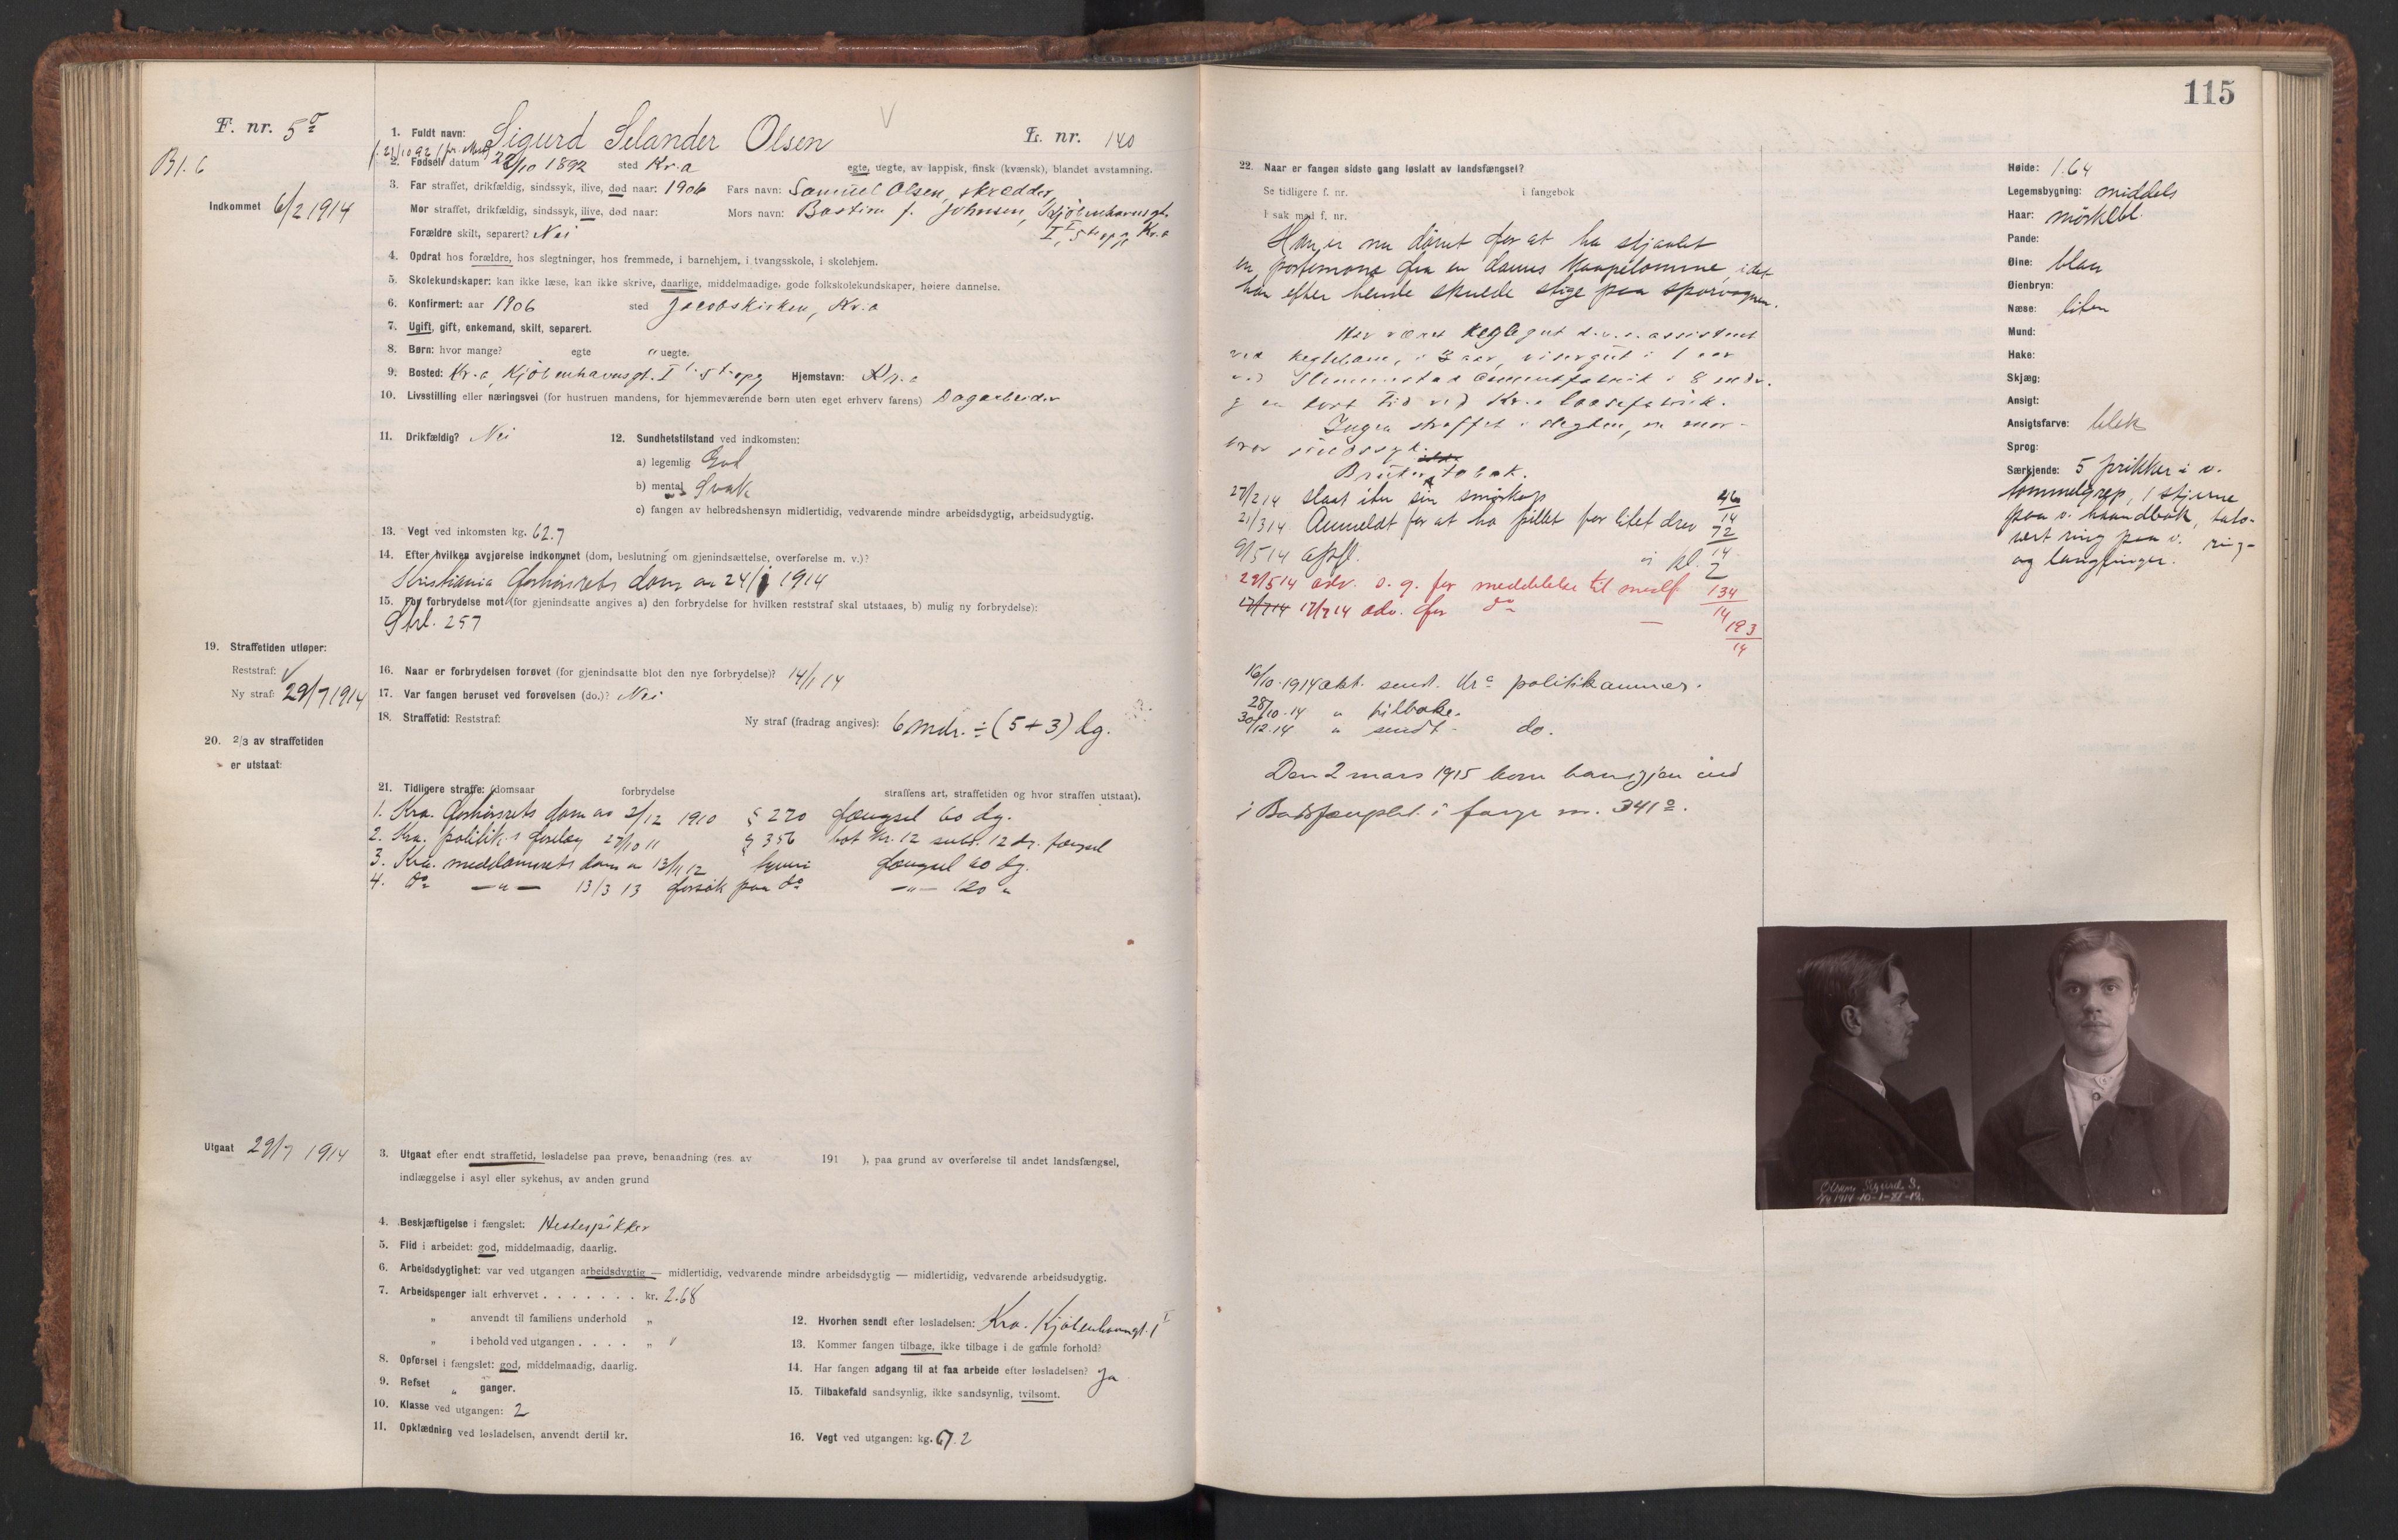 115
F. nr. 5
L. nr. 140
Bl. 6
Indkommet 6/2 1914
1. Fuldt navn: Sigurd Selander Olsen
2. Fødsel: datum 22/10 1892 sted Kr.a
egte, uegte, av lappisk, finsk (kvænsk), blandet avstamning.
3. Far straffet, drikfældig, sindssyk, ilive, død naar: 1906 Fars navn: Samuel Olsen, skrædder,
Mor straffet, drikfældig, sindssyk, ilive, død naar: Mors navn: Bastine J. Johnsen, Kjøbenhavnsgt.
Forældre skilt, separert? Nei
I, 5te opg Kr.a
4. Opdrat hos forældre, hos slegtninger, hos fremmede, i barnehjem, i tvangsskole, i skolehjem.
5. Skolekundskaper: kan ikke læse, kan ikke skrive, daarlige, middelmaadige, gode folkskolekundskaper, høiere dannelse.
6. Konfirmert: aar 1906 sted Jacobskirken, Kr.a
7. Ugift, gift, enkemand, skilt, separert.
8. Børn: hvor mange? egte " uegte.
9. Bosted: Kr.a, Kjöbenhavnsgt. I 5t. opg Hjemstavn: Kr.a
10. Livsstilling eller næringsvei (for hustruen mandens, for hjemmeværende børn uten eget erhverv farens) Dagarbeider
11. Drikfældig? Nei
12. Sundhetstilstand ved indkomsten:
a) legemlig God
b) mental Svak
c) fangen av helbredshensyn midlertidig, vedvarende mindre arbeidsdygtig, arbeidsudygtig.
13. Vegt ved inkomsten kg. 62.7
14. Efter hvilken avgjørelse indkommet (dom, beslutning om gjenindsættelse, overførelse m. v.)?
Kristiania forhørsrets dom av 24/1 1914
15. For forbrydelse mot (for gjenindsatte angives a) den forbrydelse for hvilken reststraf skal utstaaes, b) mulig ny forbrydelse):
Strl. 257
19. Straffetiden utløper:
Reststraf:
Ny straf: 29/7 1914
16. Naar er forbrydelsen forøvet (for gjenindsatte blot den nye forbrydelse)? 14/1 14
17. Var fangen beruset ved forøvelsen (do.)? Nei
18. Straffetid: Reststraf: Ny straf (fradrag angives): 6 mdr. ÷ (5 + 3) dg.
20. 2/3 av straffetiden
er utstaat:
21. Tidligere straffe: (domsaar forbrydelse straffens art, straffetiden og hvor straffen utstaat).
1. Kra. forhørsrets dom av 2/12 1910 § 270 fængsel 60 dg.
2. Kra. politik.s forelæg 27/10 11 § 356 bot kr. 12 subs. 12 dg. fængsel
3. Kra. meddomsrets dom av 13/11 12 tyveri fængsel 60 dg.
4. do — " — 13/3 13 forsøk paa do — " — 120 "
Utgaat 29/7 1914
3. Utgaat efter endt straffetid, løsladelse paa prøve, benaadning (res. av 191 ), paa grund av overførelse til andet landsfængsel,
indlæggelse i asyl eller sykehus, av anden grund
4. Beskjæftigelse i fængslet: Hestespikker
5. Flid i arbeidet: god, middelmaadig, daarlig.
6. Arbeidsdygtighet: var ved utgangen arbeidsdygtig — midlertidig, vedvarende mindre arbeidsdygtig — midlertidig, vedvarende arbeidsudygtig.
7. Arbeidspenger ialt erhvervet . . . . . . . kr. 2.68
" anvendt til familiens underhold "
" i behold ved utgangen . . . . "
8. Opførsel i fængslet: god, middelmaadig, daarlig.
9. Refset " ganger.
10. Klasse ved utgangen: 2
11. Opklædning ved løsladelsen, anvendt dertil kr.
12. Hvorhen sendt efter løsladelsen: Kra. Kjøbenhavngt. 1
13. Kommer fangen tilbage, ikke tilbage i de gamle forhold?
14. Har fangen adgang til at faa arbeide efter løsladelsen? Ja
15. Tilbakefald sandsynlig, ikke sandsynlig, tvilsomt.
16. Vegt ved utgangen: kg. 67.2
22. Naar er fangen sidste gang løslatt av landsfængsel?
Se tidligere f. nr. i fangebok
I sak med f. nr.
Han er nu dømt for at ha stjaalet
en portemonæ fra en dames kaapelomme, idet
han efter hende skulde stige paa sporvognen.
Har været keglegut d.v.s. assistent
ved keglebane, i 3 aar, visergut i 1 aar
ved Slemmestad cementfabrik i 8 mdr.
og en kort tid ved Kr.a laasefabrik.
Ingen straffet i slegten, en mor-
bror sindssyk.
Bruker tobak.
27/2 14 slaat itu sin smørkop 46/14
21/3 14 Anmeldt for at ha pillet for litet drev 72/14
9/5 14 opfl. i kl. 2
29/5 14 adv. o. g. for meddelelse til medf. 134/14
17/7 14 17/7 14 adv. for do — 193/14
16/10 1914 akt. sendt. Kra politikammer.
28/10 14 " tilbake.
30/12 14 " sendt do.
Den 2 mars 1915 kom han igjen ind
i Botsfængslet i fange nr. 341a.
Høide: 1.64
Legemsbygning: middels
Haar: mørkebl.
Pande:
Øine: blaa
Øienbryn:
Næse: liten
Mund:
Hake:
Skjæg:
Ansigt:
Ansigtsfarve: blek
Sprog:
Særkjende: 5 prikker i v.
tommelgrep, 1 stjerne
paa v. haandbak, tato-
vert ring paa v. ring-
og langfinger.
Olsen, Sigurd S.